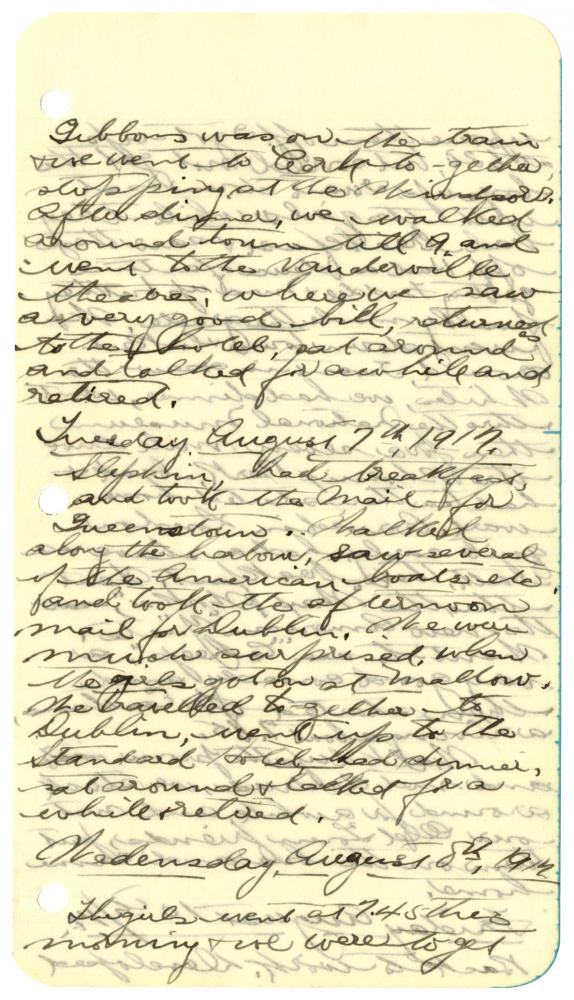 Gibbons was on the train
& we went to Cork to-gether,
stopping at the Windsor.
After dinner, we walked
around town till 9 and
went to the Vanderville
theatre, where we saw
a very good bill, returned
to the hotel, sat around
and talked for awhile and
retired.
Tuesday August 7th, 1917.
Slept in, had breakfast,
and took the Mail for
Queenstown. Walked
along the harbour, saw several
of the American boats etc.
and took the afternoon
mail for Dublin. We were
much surprised, when
the girls got on at Mallow.
We travelled together to
Dublin, went up to the
Standard Hotel, had dinner,
sat around & talked for a
while & retired.
Wedensday, August 8th, 1917
The girls went at 7.45 this
morning & we were to get